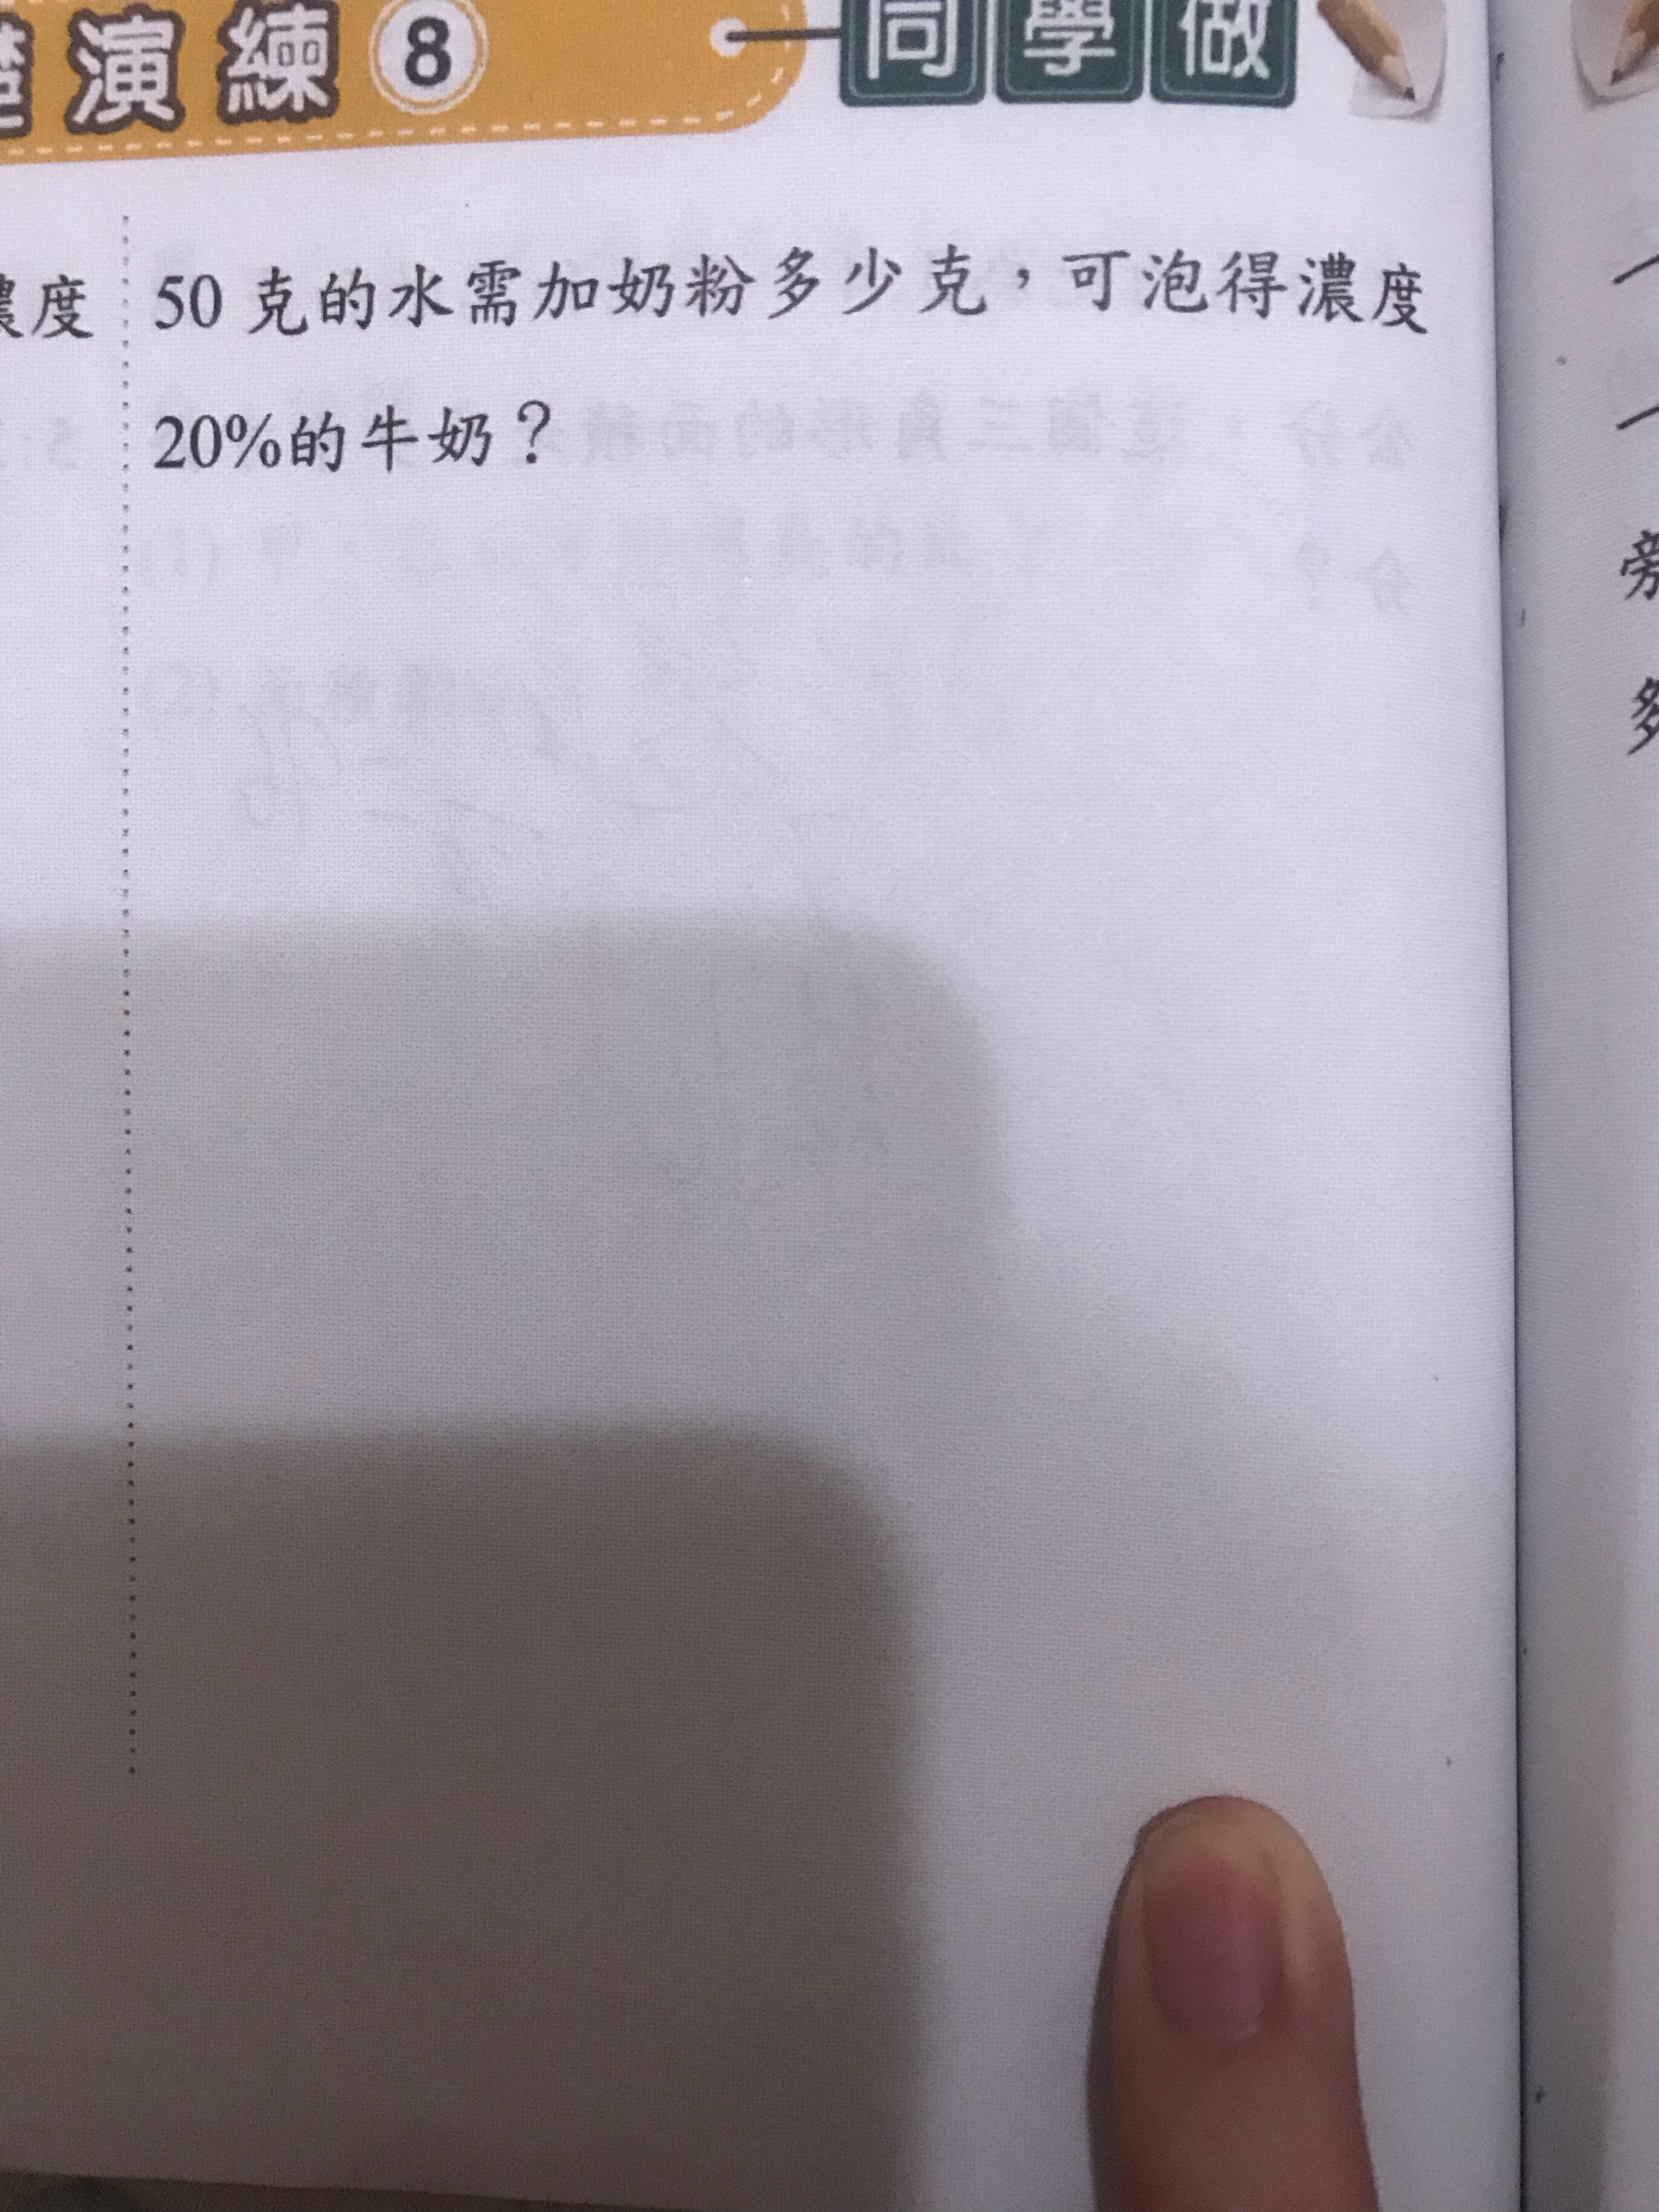 演練 8 同學做
濃度
50 克的水需加奶粉多少克，可泡得濃度
20%的牛奶？
旁
多